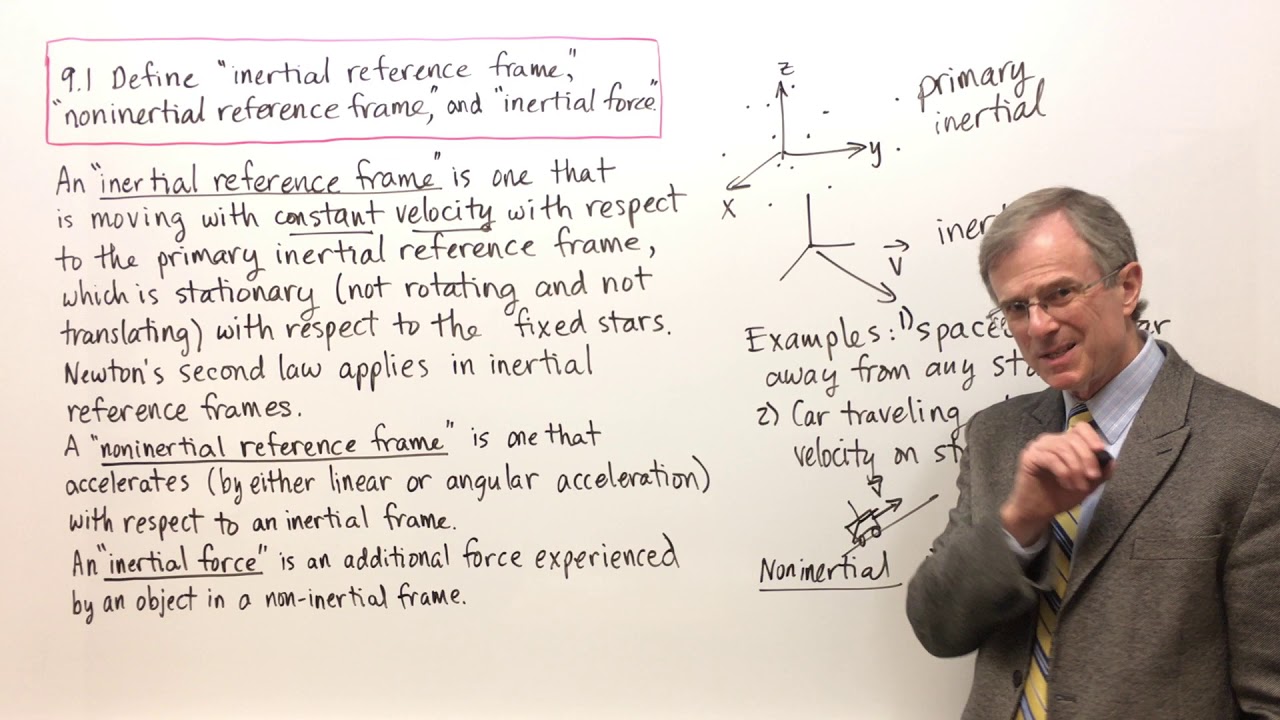 9.1 Define "inertial reference frame,"
"noninertial reference frame," and "inertial force."
An "inertial reference frame" is one that
is moving with constant velocity with respect
to the primary inertial reference frame,
which is stationary (not rotating and not
translating) with respect to the fixed stars.
Newton's second law applies in inertial
reference frames.
A "noninertial reference frame" is one that
accelerates (by either linear or angular acceleration)
with respect to an inertial frame.
An "inertial force" is an additional force experienced
by an object in a non-inertial frame.
z
y
x
primary
inertial
v
Examples: 1)
away from any
2) Car traveling
velocity on
Noninertial